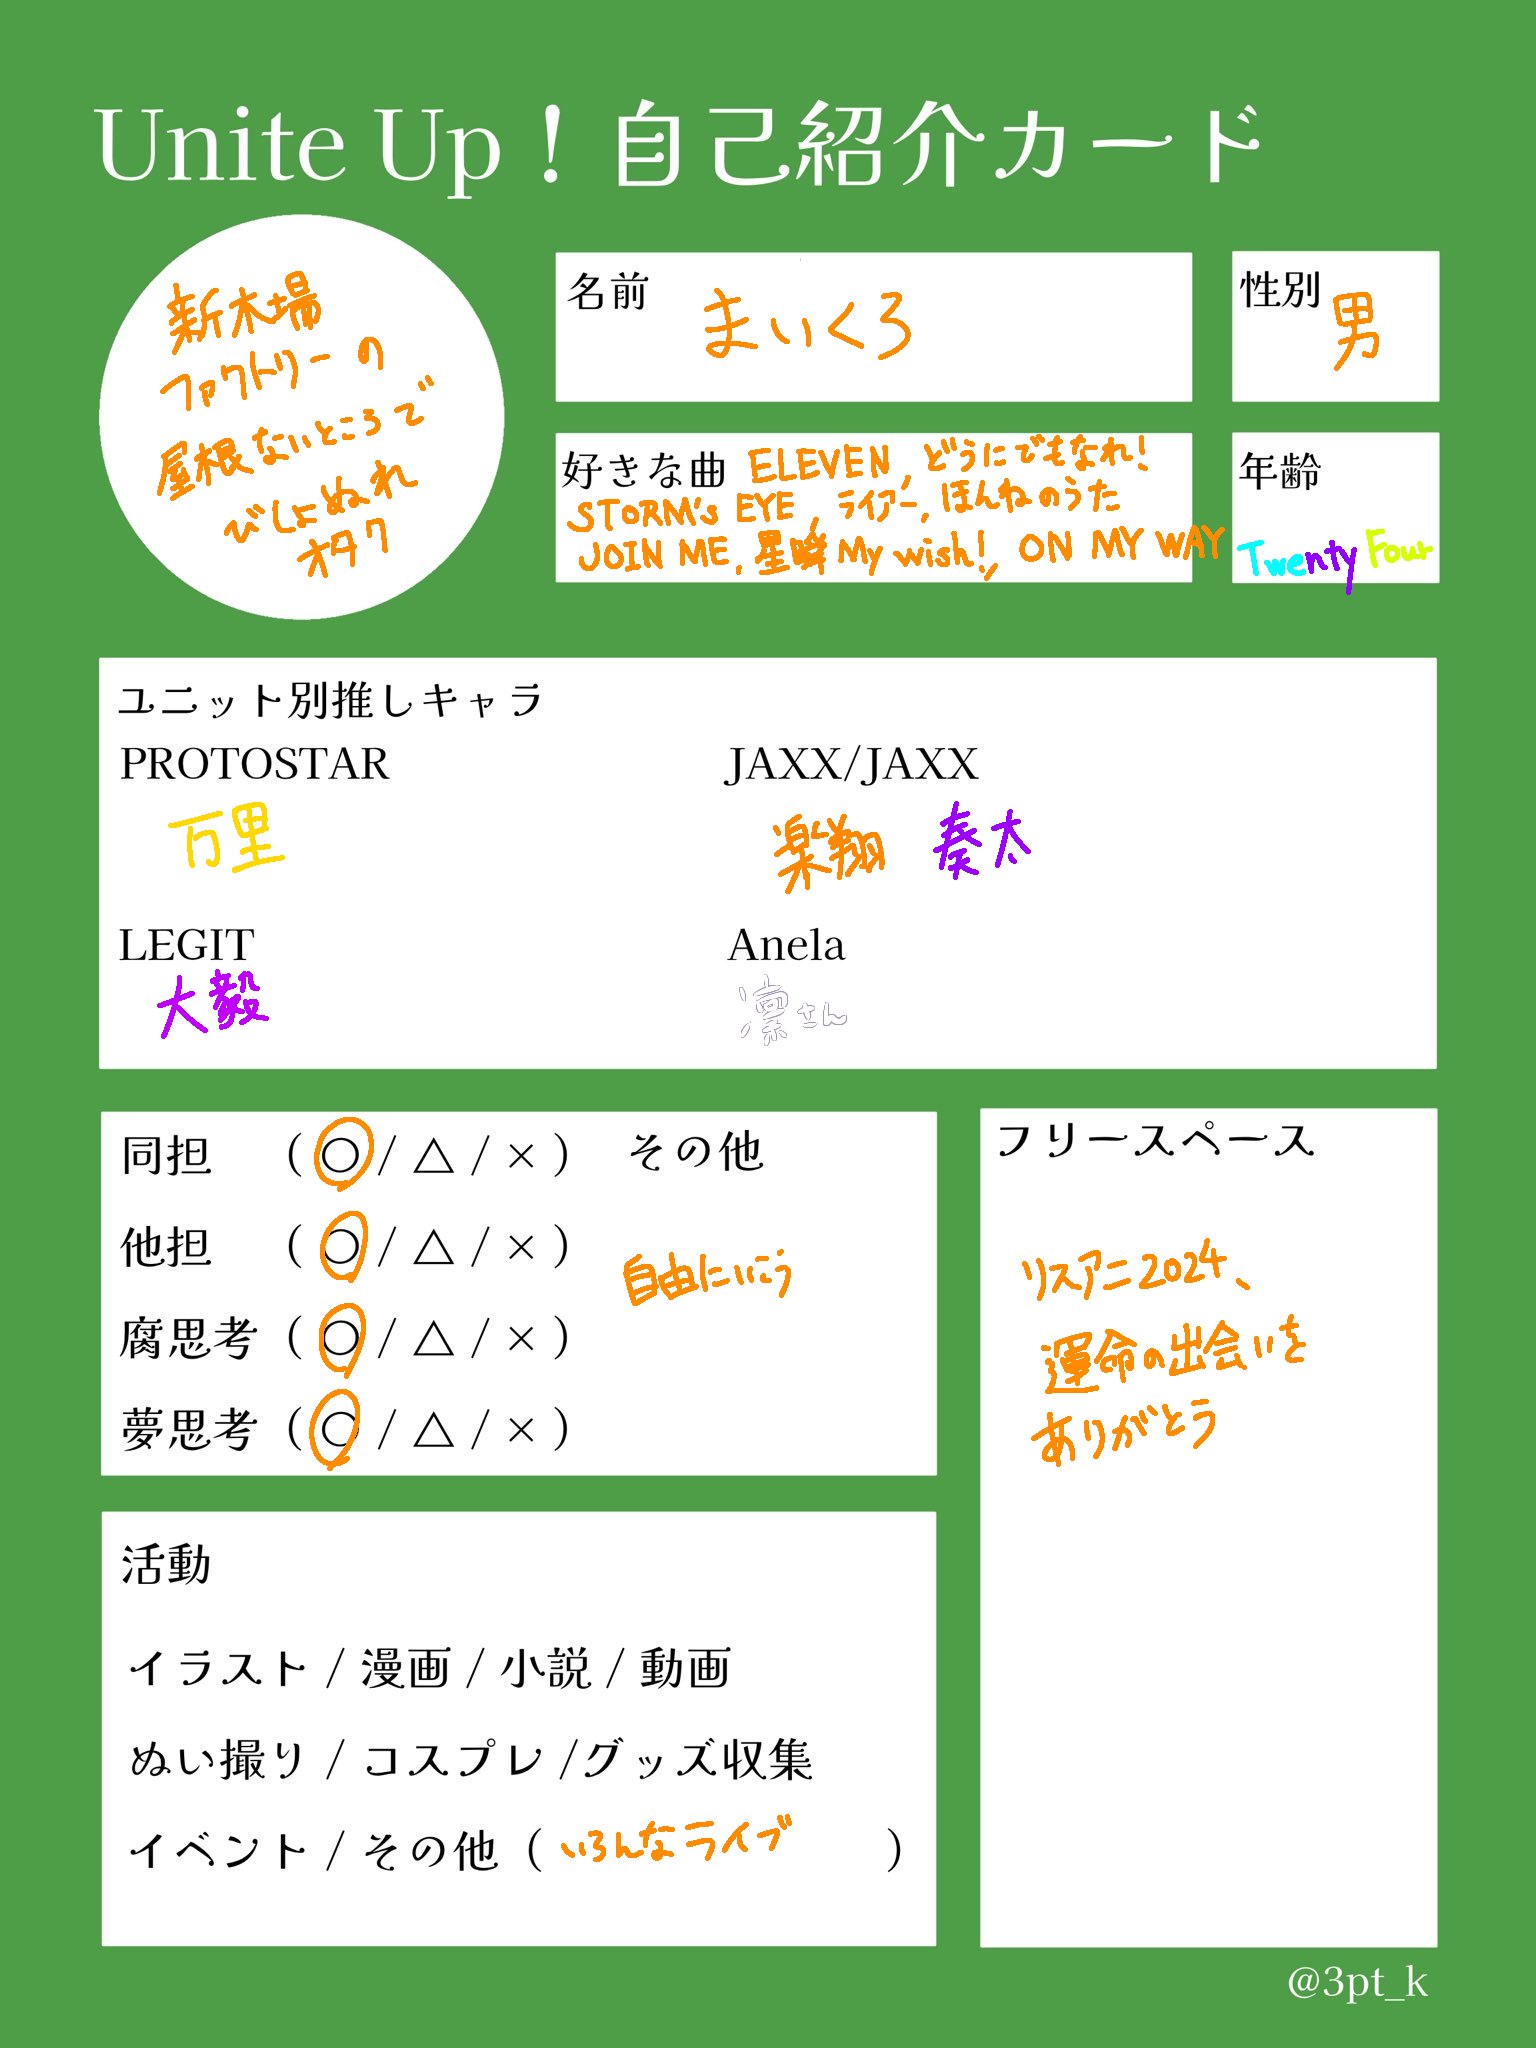 Unite Up！自己紹介カード
新木場
ファクトリーの
屋根ないところで
びしょぬれ
オタク
名前 まいくろ
性別 男
好きな曲 ELEVEN, どうにでもなれ!
STORM's EYE, ライアー, ほんねのうた
JOIN ME, 星瞬 My wish!, ON MY WAY
年齢
Twenty Four
ユニット別推しキャラ
PROTOSTAR
万里
JAXX/JAXX
楽翔 奏太
LEGIT
大毅
Anela
凛さん
同担 (○/△/×) その他
他担 (○/△/×)
自由にいこう
腐思考 (○/△/×)
夢思考 (○/△/×)
フリースペース
リスアニ2024、
運命の出会いを
ありがとう
活動
イラスト / 漫画 / 小説 / 動画
ぬい撮り / コスプレ /グッズ収集
イベント / その他 ( いろんなライブ )
@3pt_k